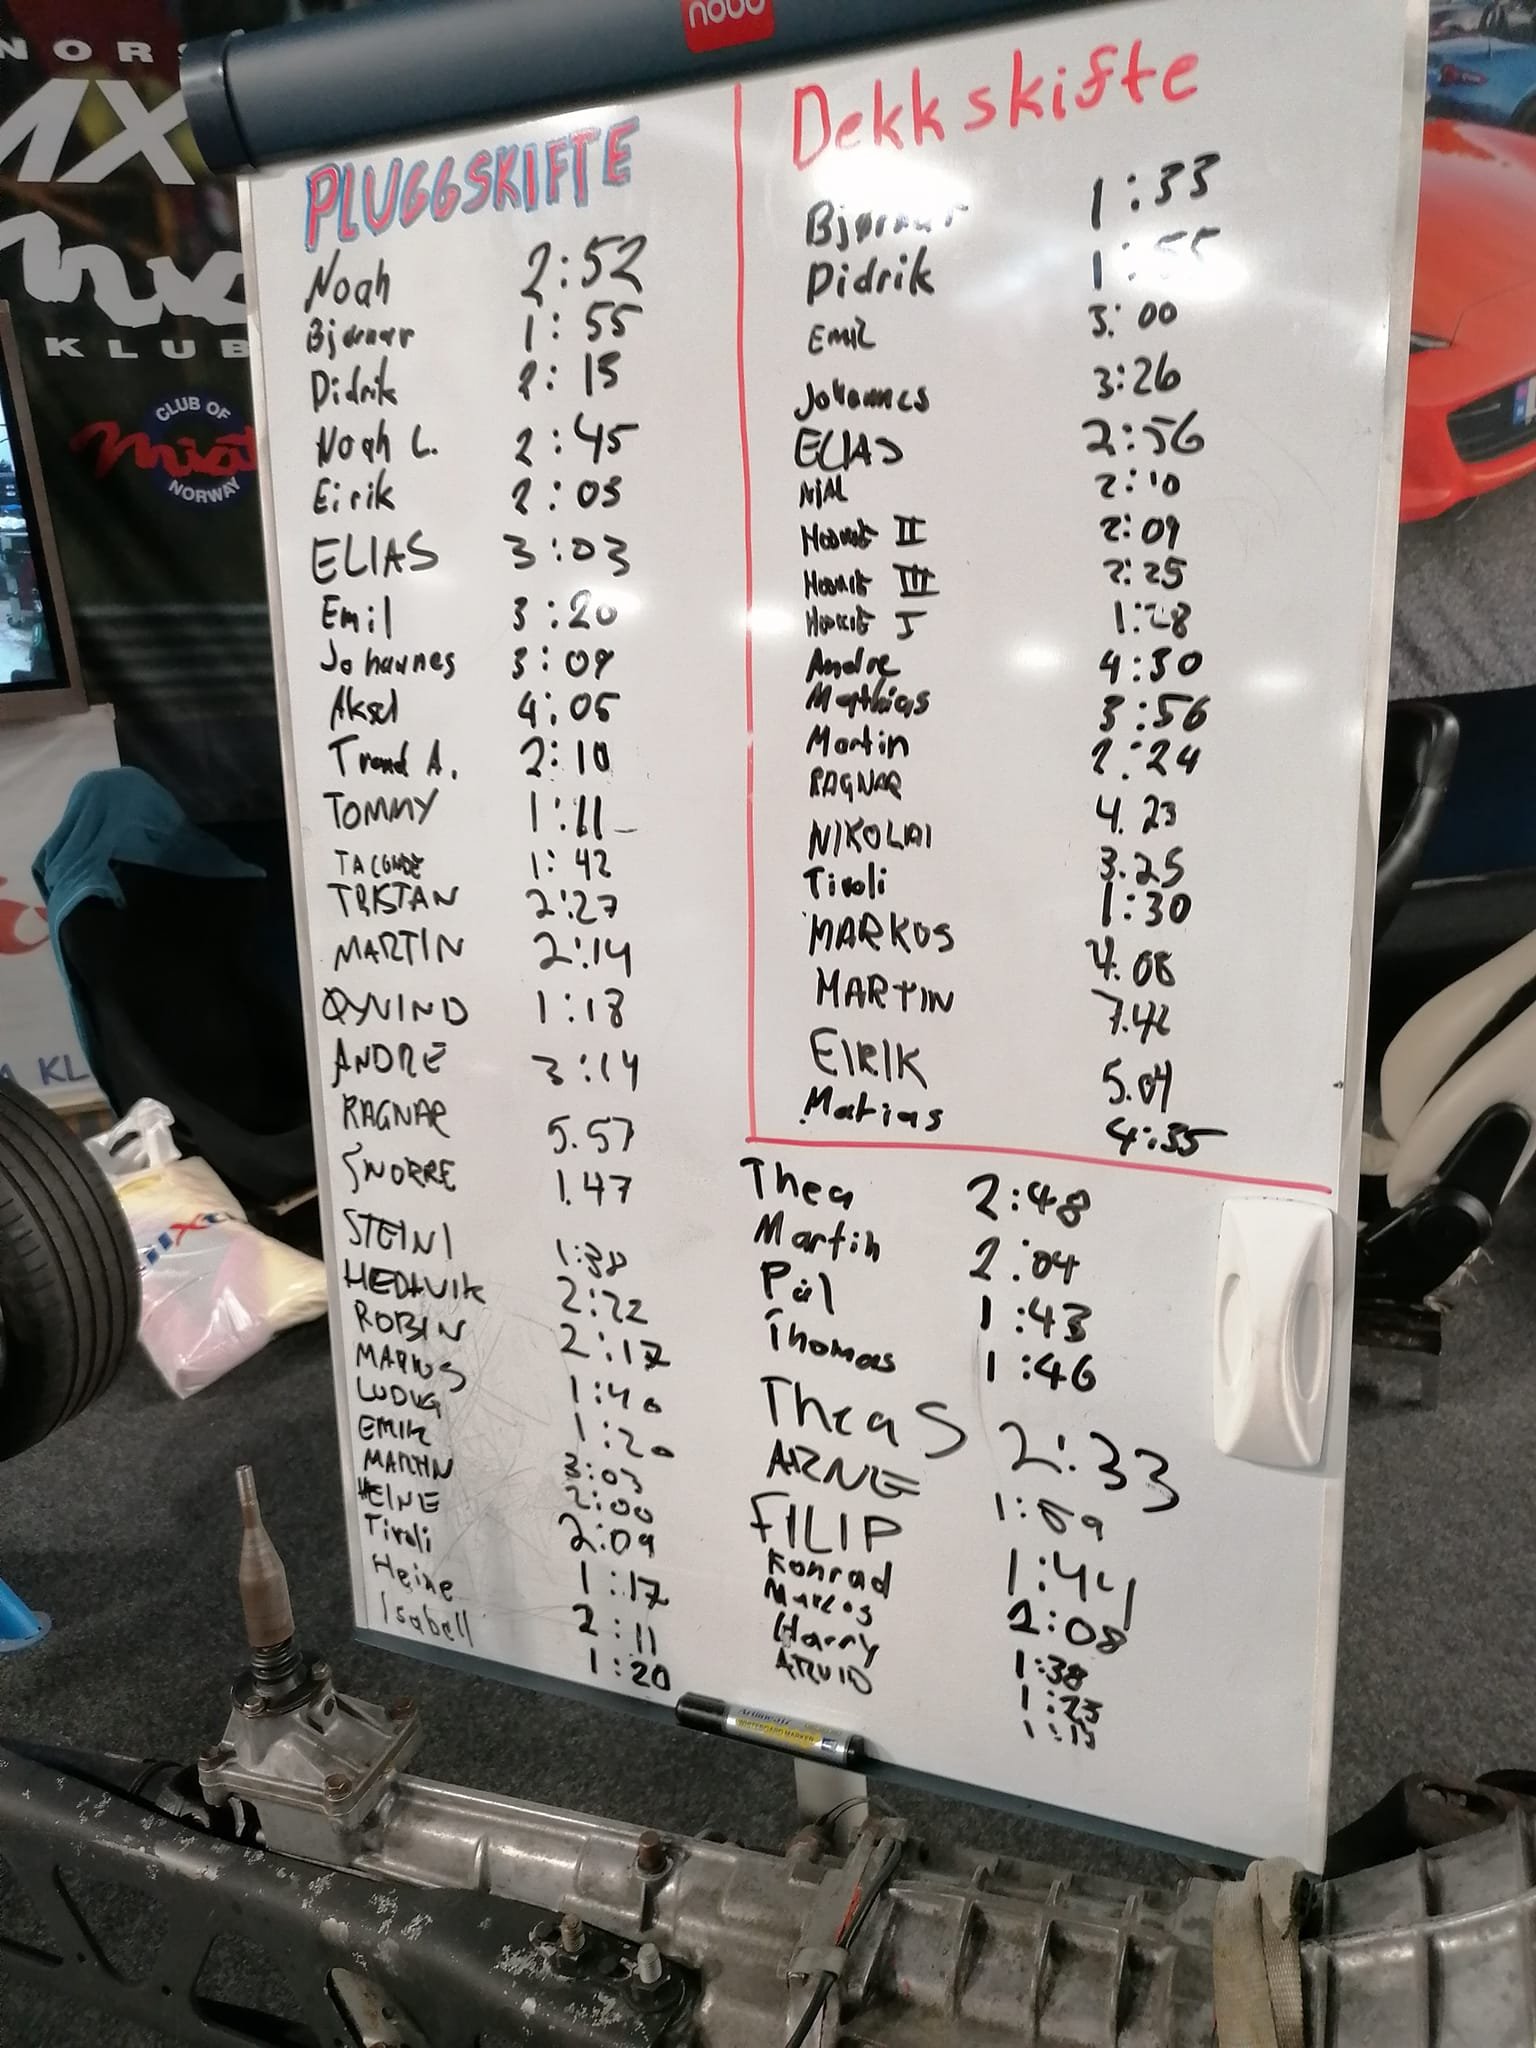 nobo
NORS
MX
KLUB
CLUB OF
miata
NORWAY
A KL
PLUGGSKIFTE
Noah 2:52
Bjørnar 1:55
Didrik 2:15
Noah L. 2:45
Eirik 2:05
ELIAS 3:03
Emil 3:20
Johannes 3:09
Aksel 4:05
Trond A. 2:10
TOMMY 1:11
1:42
TRISTAN 2:27
MARTIN 2:14
ØYVIND 1:18
ANDRE 3:14
RAGNAR 5.57
SNORRE 1.47
STEINI 1:38
HEDVIK 2:22
ROBIN 2:17
MARKUS 1:40
LUDVIG 1:20
EMIL 3:03
MARTIN 2:00
HEINE 2:09
Tivoli 1:17
Heine 2:11
Isabell 1:20
Dekkskifte
Bjørnar 1:33
Didrik 1:55
EMIL 3:00
Johannes 3:26
ELIAS 2:56
NJÅL 2:10
II 2:09
III 2:25
I 1:28
Andre 4:30
Mathias 3:56
Martin 2:24
RAGNAR 4.23
NIKOLAI 3.25
Tivoli 1:30
MARKUS 4.08
MARTIN 7.42
EIRIK 5.04
Matias 4:35
Thea 2:48
Martin 2:04
Pål 1:43
Thomas 1:46
Thea S 2:33
ARNE
FILIP 1:44
Konrad 2:08
Marcos 1:38
Harry 1:23
ARVID 1:15
WHITEBOARD MARKER